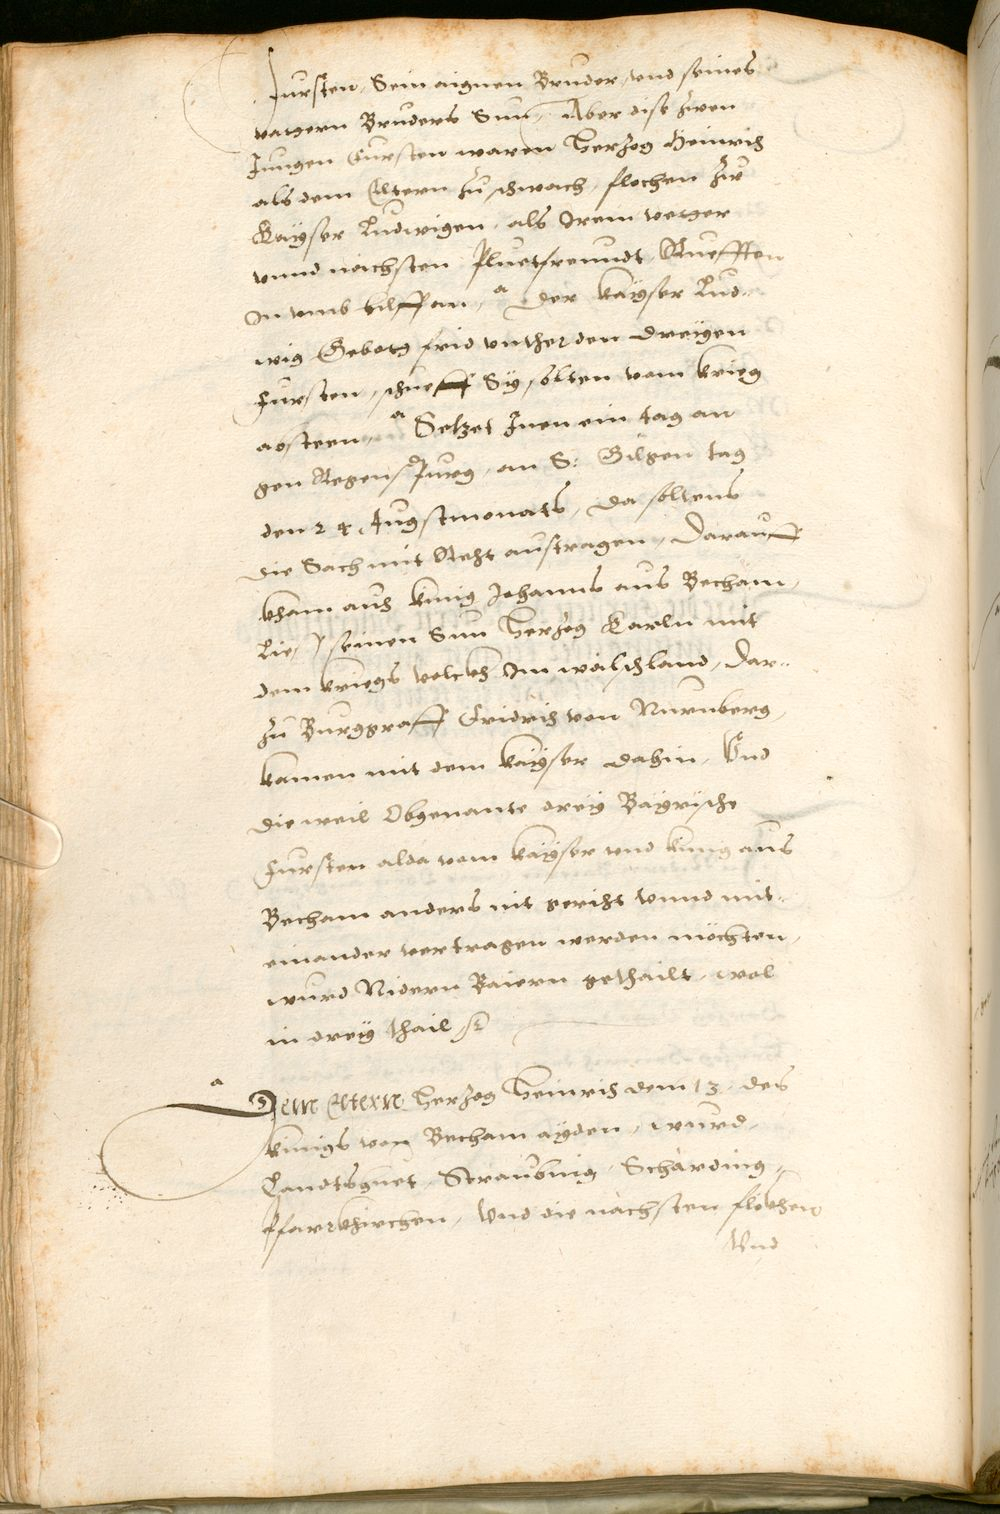 Fursten, Sein aignen Bruder, vnd seines
vatern Bruders Sun, Aber dise zwen
Jungen Fursten waren Herzog Heinrich
als dem Eltern zu schwach, flochen zw
Kaÿser Ludwigen, als Irem vetter
vnnd nächsten Pluetfreundt, Ruefften
In vmb hilff an, Der kaÿser Lud-
wig Geboth frid vnther den Dreÿen
Fursten, schueff Sÿ solten vom krieg
absteen, Setzet Inen ein tag an
gen Regenspurg, an S: Gilgen tag
den 24 Augstmonats, Da soltens
die Sach mit Recht austragen, Darauff
kham auch kunig Johanns aus Becham,
Lies seinen Sun Herzog Carln mit
dem kriegs volckh Im wälschland, Dar-
zu Burggraff Fridrich von Nurnberg,
kamen mit dem kaÿser dahin, Vnd
die weil Obgenante dreÿ Baÿrische
Fursten alda vom kaÿser vnd kunig aus
Becham anders nit gericht vnnd mit-
einander vertragen werden mochten,
wurd Nidern Baiern gethailt, wol
in dreÿ thail
Dem Eltern Herzog Heinrich dem 13. des
kunigs von Becham ayden, wurd,
Landtshuet, Straubing, Schärding,
Pfarrkhirchen, Vnd die nächsten flekhen
Vnd